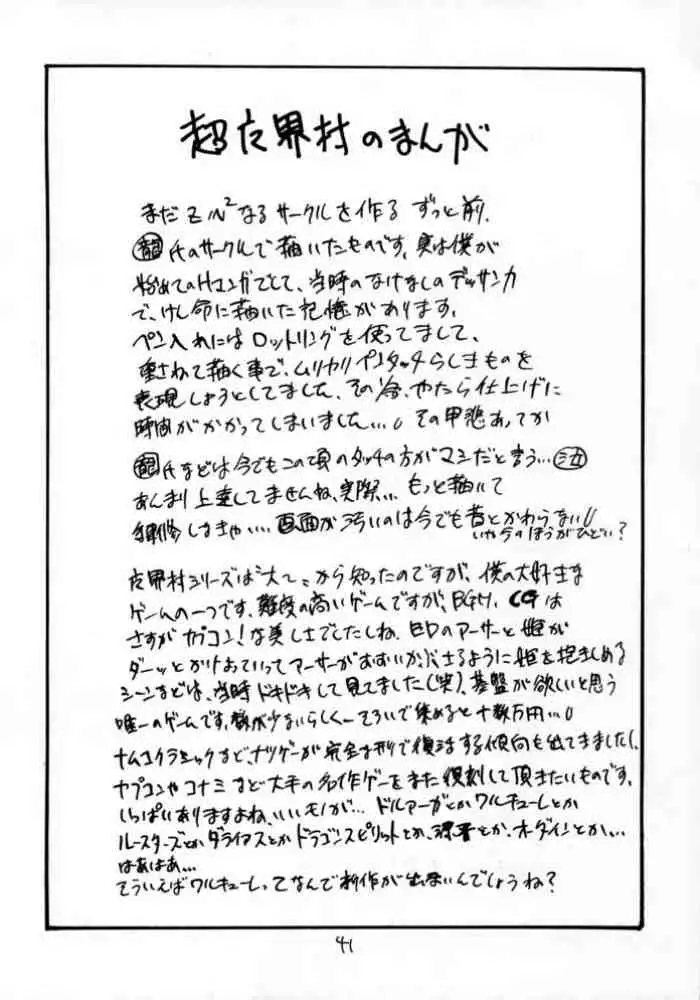 超魔界村のまんが
まだZN²なるサークルを作るずっと前、
氏のサークルで描いたものです、実は僕が
始めてのHマンガでして、当時のなけなしのデッサン力
で、けん命に描いた記憶があります。
ペン入れにはロットリングを使ってまして、
重ねて描く事で、ムリヤリペンタッチらしきものを
表現しようとしてました、その分、やたら仕上げに
時間がかかってしまいました…。その甲悲あってか
氏などは今でもこの頃のタッチの方がマシだと言う…
あんまり上達してませんね、実際…もっと描いて
修しなきゃ…。画面が汚いのは今でも昔とかわらない
いや今のほうがひどい?
魔界村シリーズは"大"から知ったのですが、僕の大好きな
ゲームの一つです、難度の高いゲームですが、BGM、CGは
さすがカプコン!な美しさでしたしね、EDのアーサーと姫が
ダーッとかけおりていってアーサーがおおいかぶさるように姫を抱きしめる
シーンなどは、当時ドキドキして見てました(笑)、基盤が欲しいと思う
唯一のゲームです、数が少ないらしくそろいで集めると十数万円…
ナムコクラシックなど、ナツゲーが完全な形で復活する傾向も出てきましたし、
カプコンやコナミなど大手の名作ゲーをまた復刻して頂きたいものです、
いっぱいありますよね、いいモノが…ドルアーガとかワルキューレとか
ルースターズとかダライアスとかドラゴンスピリットとか、源平とか、オーダインとか…
はあはあ…
そういえばワルキューレってなんで新作が出ないんでしょうね?
41